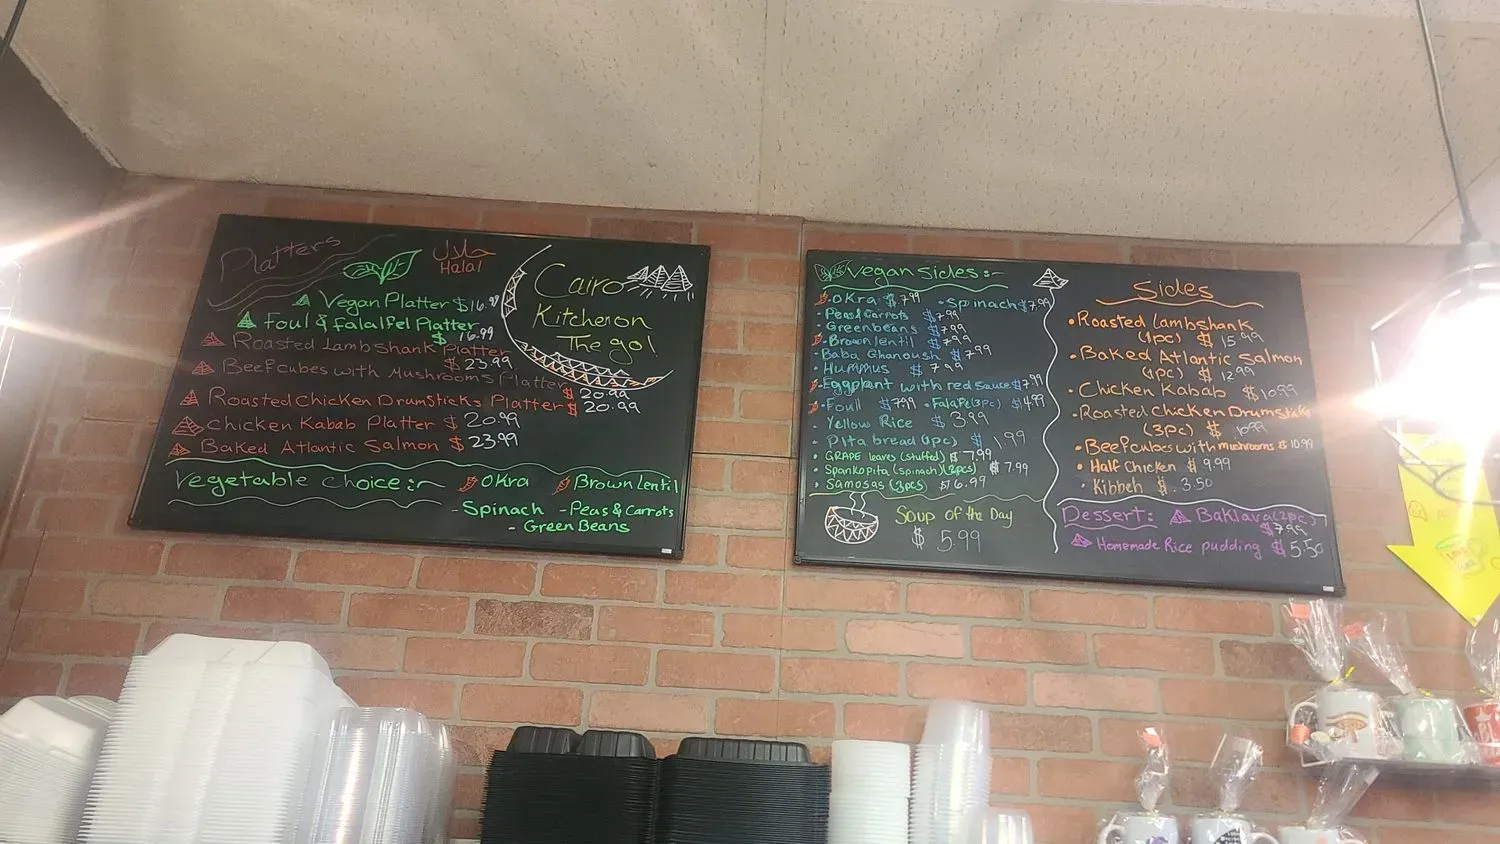 Platters
حلال
Halal
Cairo
Kitchen on
The go!
Vegan Platter $16.99
Foul & Falalfel Platter
$16.99
Roasted Lamb Shank Platter
$23.99
Beef cubes with Mushrooms Platter
$20.99
Roasted Chicken Drumsticks Platter $20.99
Chicken Kabab Platter $20.99
Baked Atlantic Salmon $23.99
Vegetable choice:~
Okra
Brown Lentil
- Spinach - Peas & Carrots
- Green Beans
Vegan sides:~
• Okra $7.99 • Spinach $7.99
• Peas & Carrots $7.99
• Green beans $7.99
• Brown lentil $7.99
• Baba Ghanoush $7.99
• Hummus $7.99
• Eggplant with red sauce $7.99
• Foull $7.99 • Falafel (3Pc) $4.99
• Yellow Rice $3.99
• Pita bread (1pc) $1.99
• GRAPE leaves (stuffed) $7.99
• Spankopita (spinach) (2pcs) $7.99
• Samosas (3pcs) $6.99
Soup of the Day
$5.99
Sides
• Roasted Lambshank
(1pc) $15.99
• Baked Atlantic Salmon
(1pc) $12.99
• Chicken Kabab $10.99
• Roasted Chicken Drumsticks
(3pc) $10.99
• Beef cubes with mushrooms $10.99
• Half Chicken $9.99
• Kibbeh $3.50
Dessert:
Baklava (2pc)
$7.95
Homemade Rice pudding $5.50